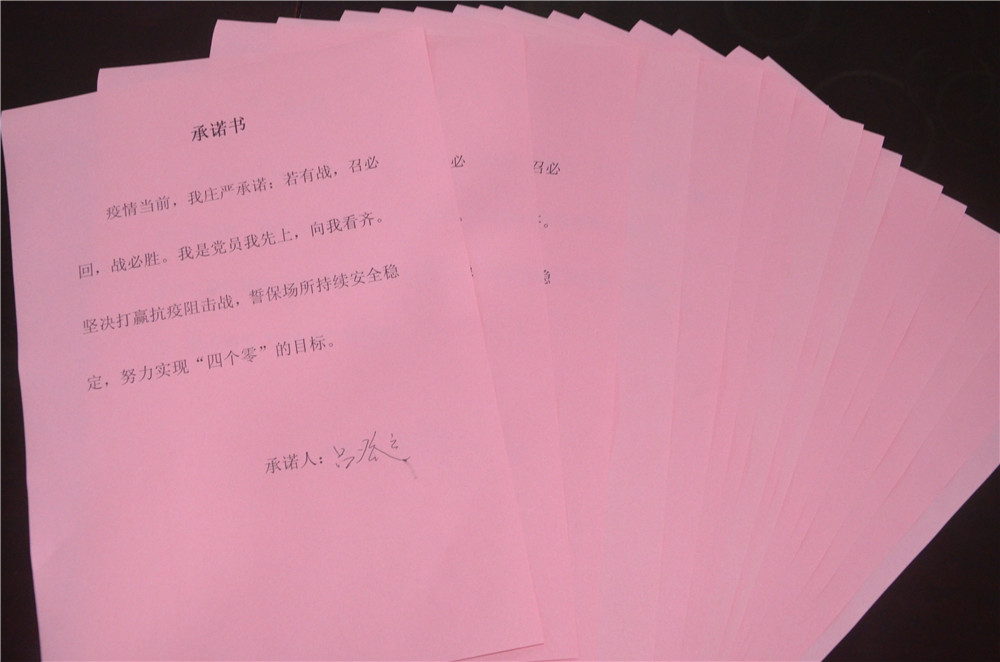 承诺书
疫情当前，我庄严承诺：若有战，召必
回，战必胜。我是党员我先上，向我看齐。
坚决打赢抗疫阻击战，誓保场所持续安全稳
定，努力实现“四个零”的目标。
承诺人：
必
召必
。